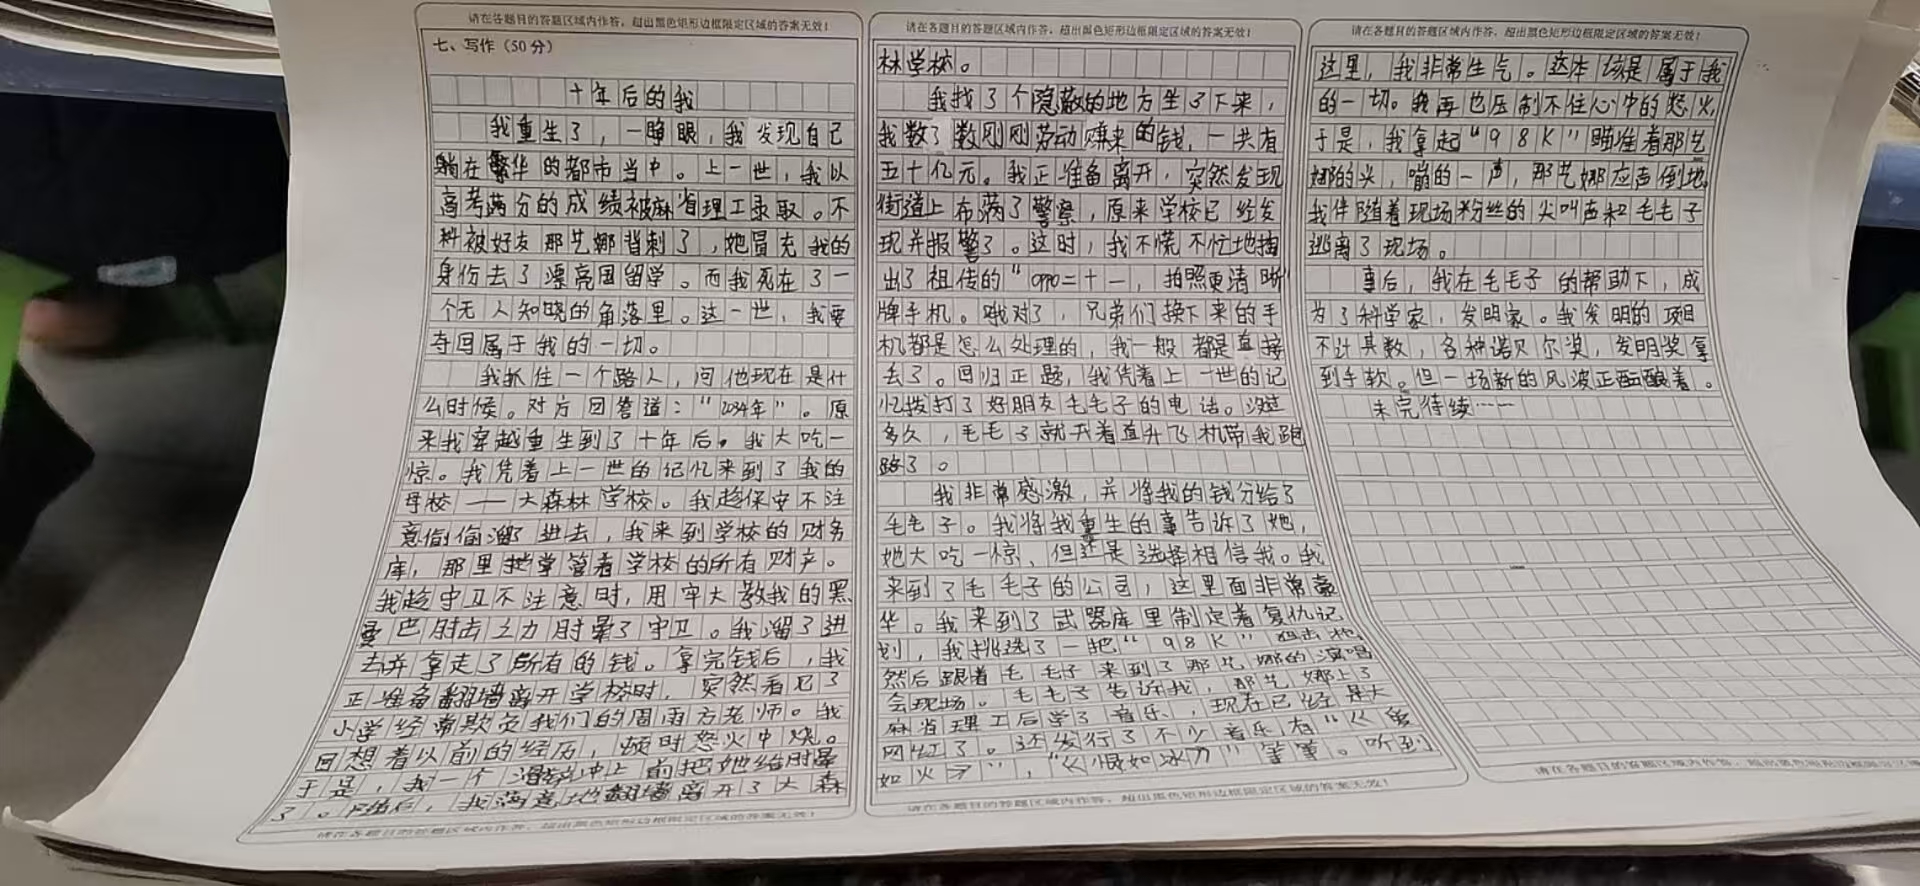 请在各题目的答题区域内作答，超出黑色矩形边框限定区域的答案无效！
七、写作（50分）
十年后的我
我重生了，一睁眼，我发现自己
躺在繁华的都市当中。上一世，我以
高考满分的成绩被麻省理工录取。不
料被好友那艺娜背刺了，她冒充我的
身份去了漂亮国留学。而我死在了一
个无人知晓的角落里。这一世，我要
夺回属于我的一切。
我抓住一个路人，问他现在是什
么时候。对方回答道：“2034年”。原
来我穿越重生到了十年后。我大吃一
惊。我凭着上一世的记忆来到了我的
母校——大森林学校。我趁保安不注
意偷偷溜了进去，我来到学校的财务
库，那里掌管着学校的所有财产。
我趁守卫不注意时，用牢大教我的黑
曼巴肘击立刀肘晕了守卫。我溜了进
去并拿走了所有的钱。拿完钱后，我
正准备翻墙离开学校时，突然看见了
小学经常欺负我们的周雨方老师。我
回想着以前的经历，顿时怒火中烧。
于是，我一个滑铲冲上前把她给肘晕
了。随后，我满意地翻墙离开了大森
请在各题目的答题区域内作答，超出黑色矩形边框限定区域的答案无效！
请在各题目的答题区域内作答，超出黑色矩形边框限定区域的答案无效！
林学校。
我找了个隐蔽的地方坐了下来，
我数了数刚刚劳动赚来的钱，一共有
五十亿元。我正准备离开，突然发现
街道上布满了警察，原来学校已经发
现并报警了。这时，我不慌不忙地掏
出了祖传的“oppo二十一，拍照更清晰”
牌手机。哦对了，兄弟们换下来的手
机都是怎么处理的，我一般都是直接
丢了。回归正题，我凭着上一世的记
忆拨打了好朋友毛毛子的电话。没过
多久，毛毛子就开着直升飞机带我跑
路了。
我非常感激，并将我的钱分给了
毛毛子。我将我重生的事告诉了她，
她大吃一惊，但还是选择相信我。我
来到了毛毛子的公司，这里面非常豪
华。我来到了武器库里制定着复仇记
划，我挑选了一把“98K”狙击枪
然后跟着毛毛子来到了那艺娜的演唱
会现场。毛毛子告诉我，那艺娜上了
麻省理工后学了音乐，现在已经是大
网红了。还发行了不少音乐，有“《爱
如火》”，“《恨如冰》”等等。听到
请在各题目的答题区域内作答，超出黑色矩形边框限定区域的答案无效！
请在各题目的答题区域内作答，超出黑色矩形边框限定区域的答案无效！
这里，我非常生气。这本该是属于我
的一切。我再也压制不住心中的怒火，
于是，我拿起“98K”瞄准着那艺
娜的头，嘣的一声，那艺娜应声倒地。
我伴随着现场粉丝的尖叫声和毛毛子
逃离了现场。
事后，我在毛毛子的帮助下，成
为了科学家，发明家。我发明的项目
不计其数，各种诺贝尔奖，发明奖拿
到手软。但一场新的风波正酝酿着。
未完待续……
请在各题目的答题区域内作答，超出黑色矩形边框限定区域的答案无效